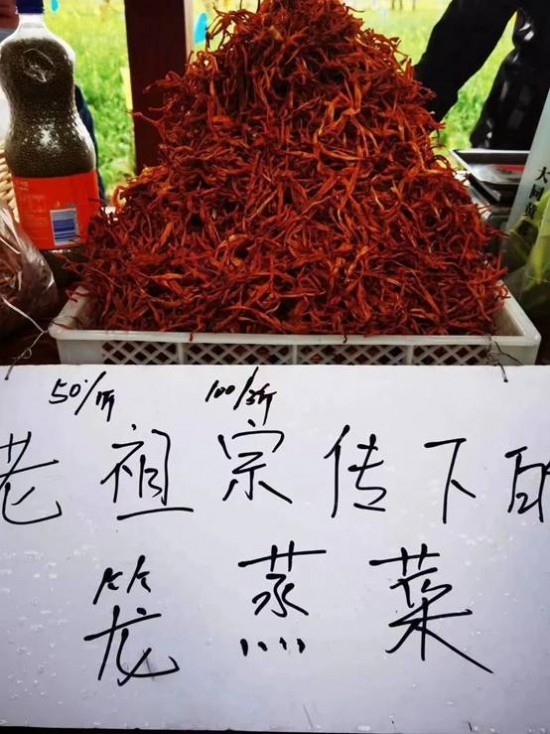 50/斤 100/3斤
老祖宗传下的
笼蒸菜